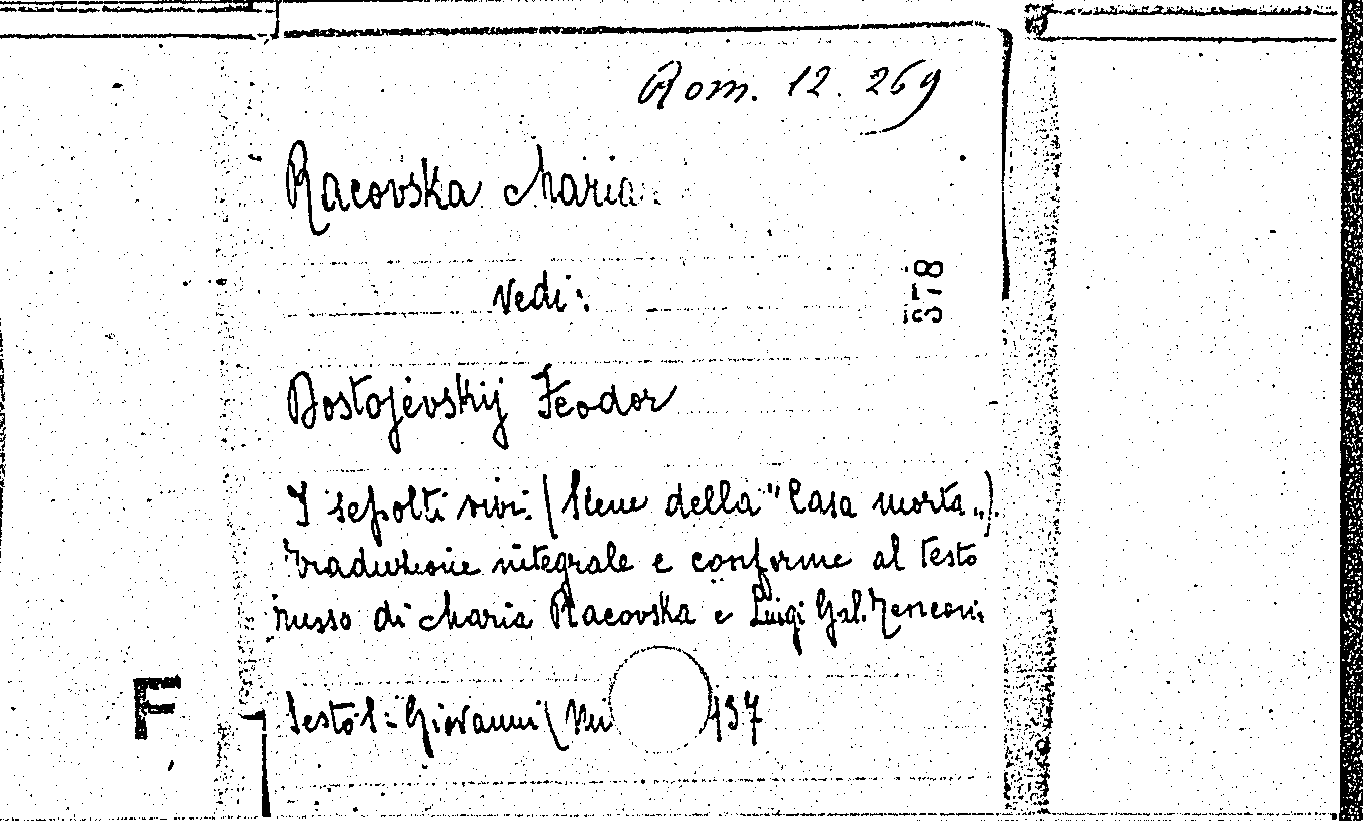 Rom. 12. 269
Racovska Maria
Vedi:
578
Dostojévskij Feodor
I sepolti vivi. (Scene della "Casa morta„).
Traduzione integrale e conforme al testo
russo di Maria Racovska e Luigi Gal. Tenconi.
F
Sesto S. Giovanni (Mi 937